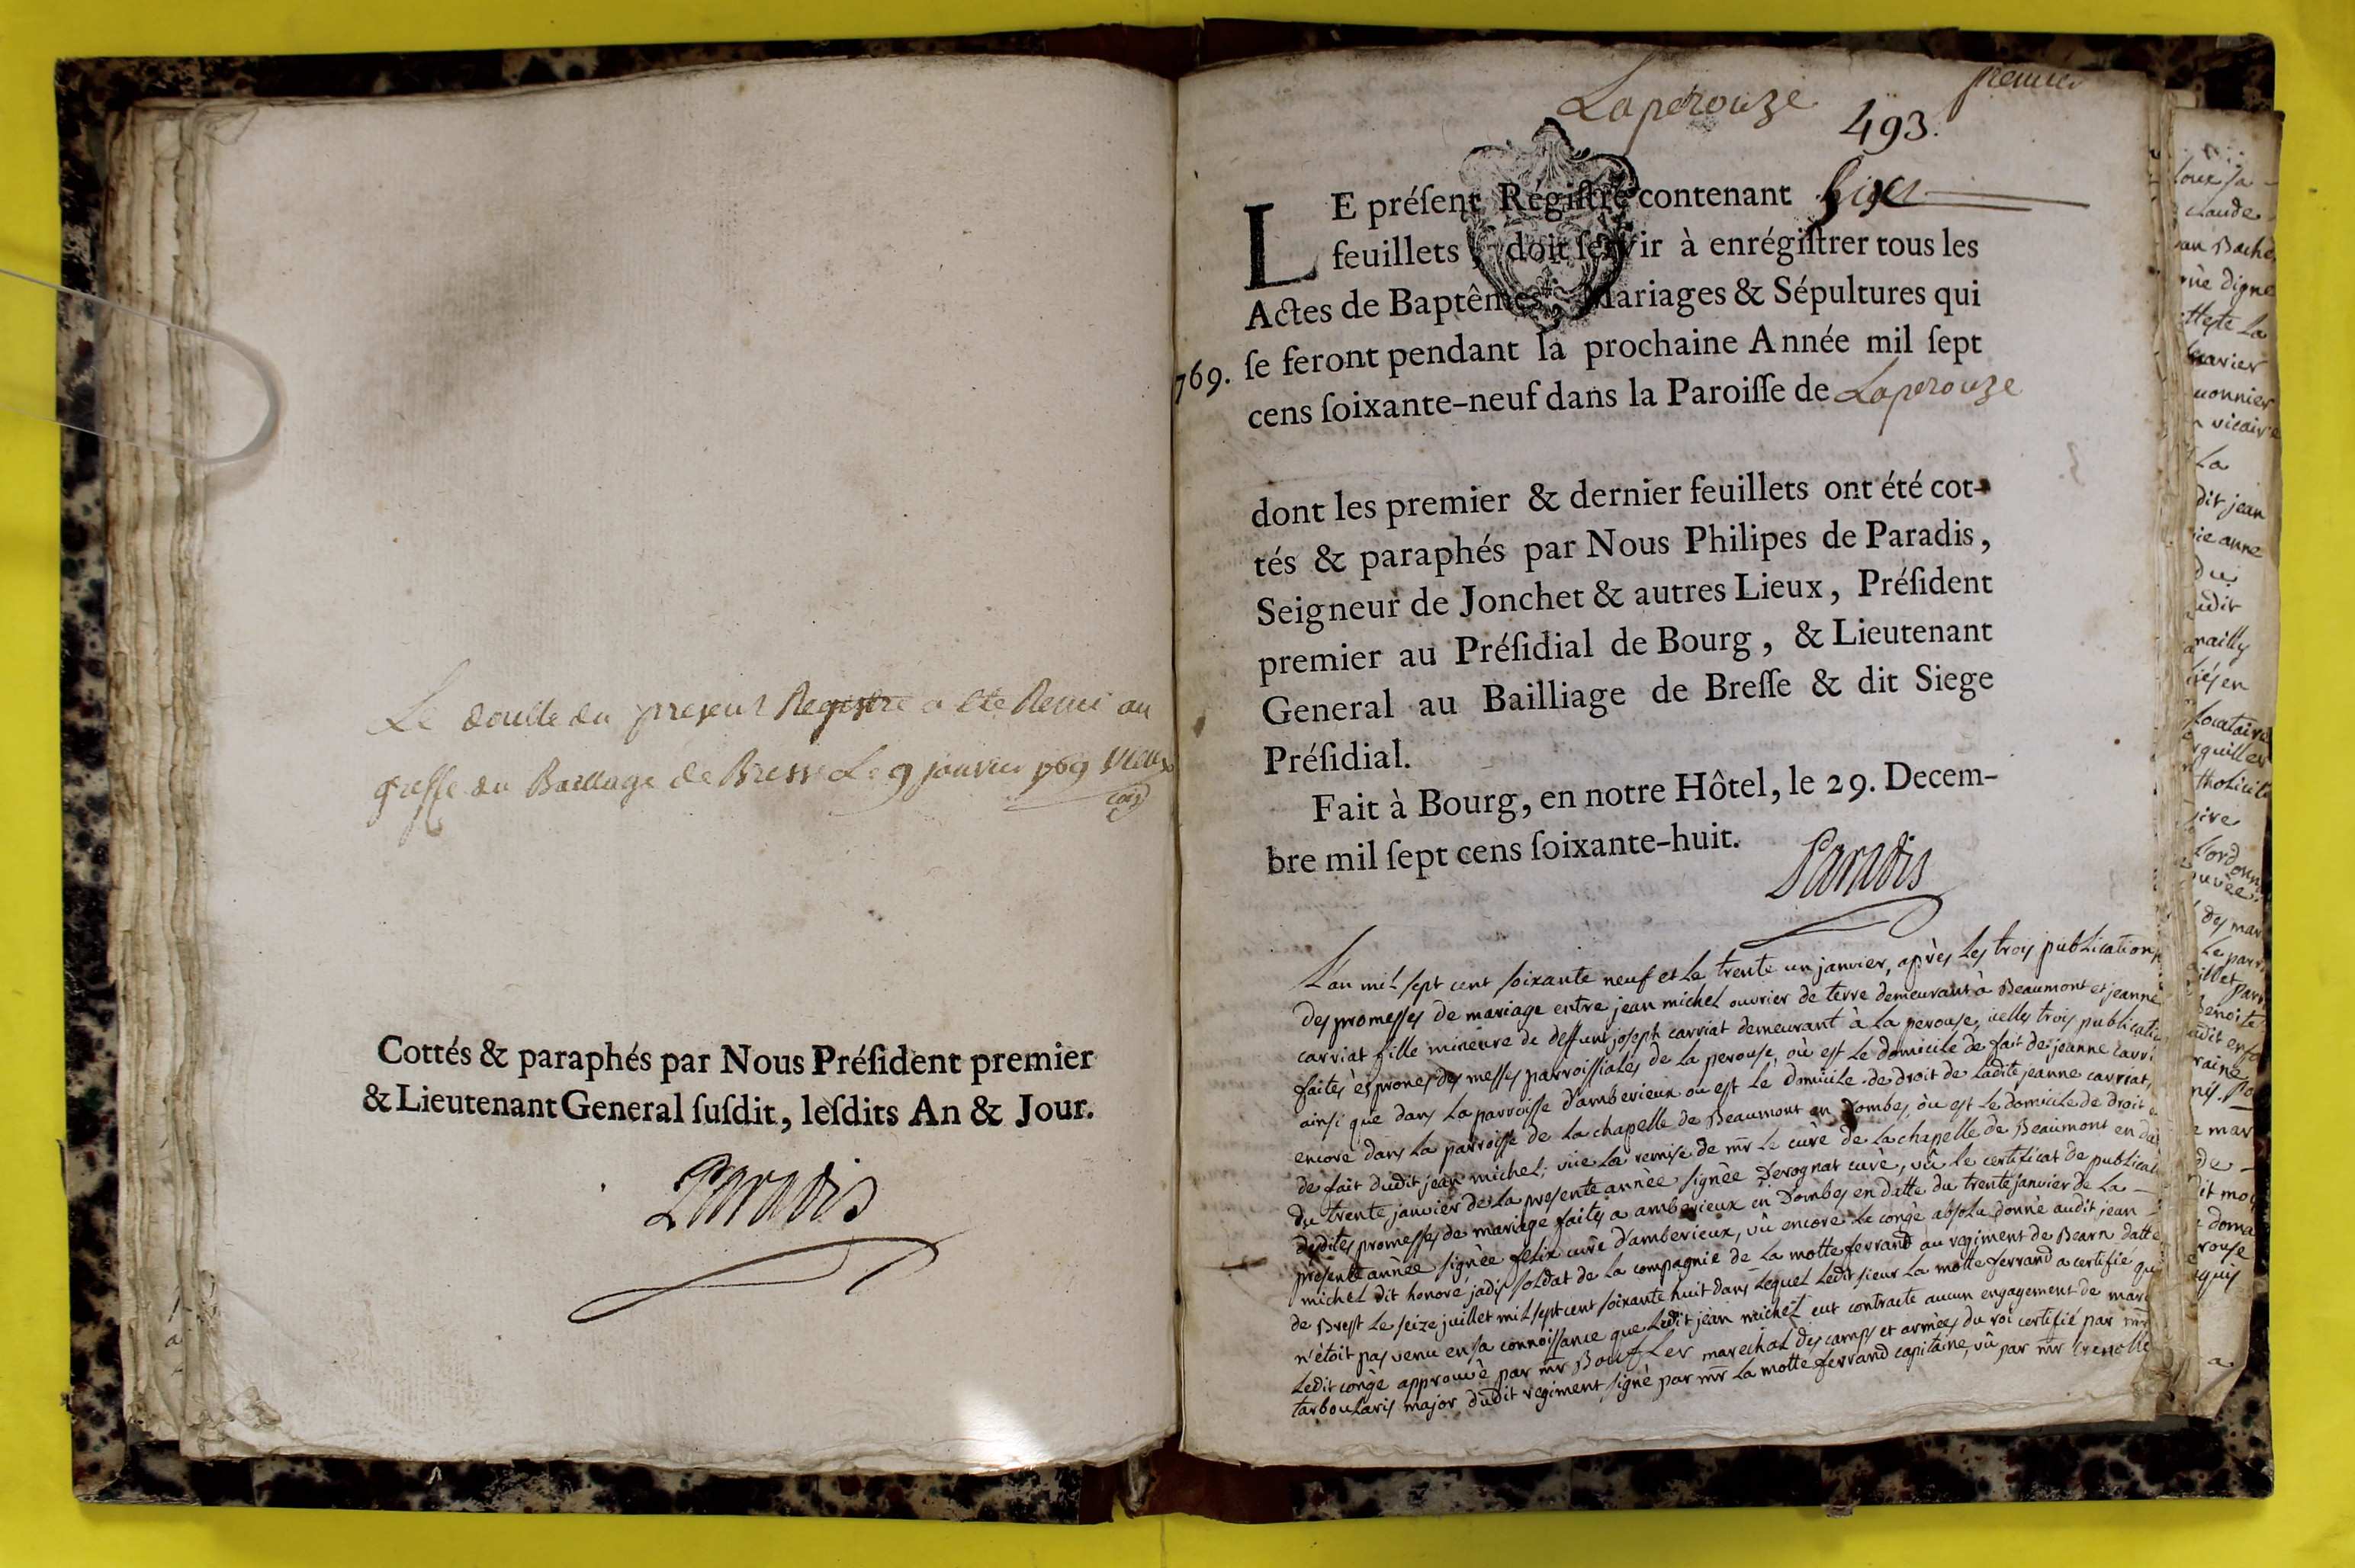 Le double du present Registre a ete Remis au
greffe du Bailliage de Bresse Le 9 janvier 1769
Cottés & paraphés par Nous Préſident premier
& Lieutenant General ſuſdit, leſdits An & Jour.
Paradis
Laperouze
premier
493.
LE préſent Régiſtre contenant
feuillets, doit ſervir à enrégiſtrer tous les
Actes de Baptêmes, Mariages & Sépultures qui
769. ſe feront pendant la prochaine Année mil ſept
cens ſoixante-neuf dans la Paroiſſe de Laperouze
dont les premier & dernier feuillets ont été cot-
tés & paraphés par Nous Philipes de Paradis,
Seigneur de Jonchet & autres Lieux, Préſident
premier au Préſidial de Bourg, & Lieutenant
General au Bailliage de Breſſe & dit Siege
Préſidial.
Fait à Bourg, en notre Hôtel, le 29. Decem-
bre mil ſept cens ſoixante-huit.
Paradis
L'an mil sept cent soixante neuf et le trente un janvier, après les trois publications
des promesses de mariage entre jean michel ouvrier de terre demeurant à Beaumont et jeanne
carriat fille mineure de deffunt joseph carriat demeurant à La perouse, icelles trois
faites ès prones des messes parroissiales de la perouse, où est le domicile de fait de jeanne
ainsi que dans la parroisse d'amberieux ou est le domicile de droit de ladite jeanne carriat,
encore dans la parroisse de la chapelle de Beaumont en Dombes, où est le domicile de droit
de fait dudit jean michel; vüe la remise de mr le curé de la chapelle de Beaumont en
du trente janvier de la presente année signée Derognat curé, vû le certificat de
desdites promesses de mariage faites a amberieux en Dombes en datte du trente janvier de la
presente année signée felix curé d'amberieux, vû encore le congé absolu donné audit jean
michel dit honoré jadis soldat de la compagnie de La motte ferrand au regiment de Bearn datté
de Brest le seize juillet mil sept cent soixante huit dans lequel ledit sieur La motte ferrand a certifié
n'étoit pas venu en sa connoissance que ledit jean michel eut contracte aucun engagement de
ledit congé approuvé par mr Bouffler marechal des camps et armées du roi certifié par mr
tarboularis major dudit regiment signé par mr La motte ferrand capitaine, vû par mr